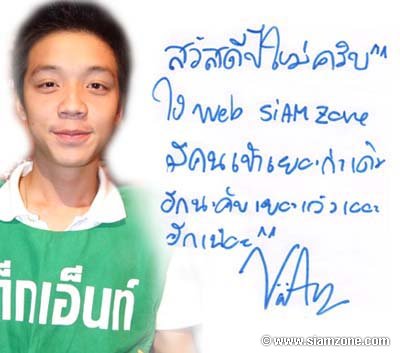 สวัสดีปีใหม่ครับ^^
ให้ Web SiAM Zone
มีคนเข้าเยอะกว่าเดิม
อีกนะคับ เยอะแล้วเยอะ
อีกเน่อะ^^
ด็กเอ็นท์
© www.siamzone.com